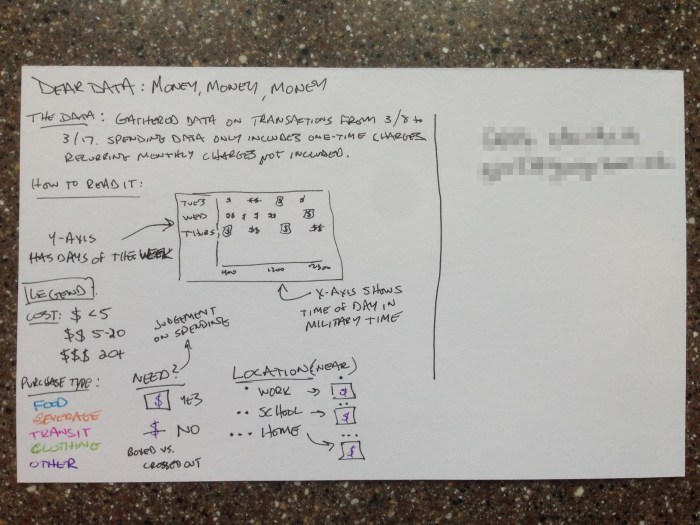 DEAR DATA: MONEY, MONEY, MONEY
THE DATA: GATHERED DATA ON TRANSACTIONS FROM 3/8 to
3/17. SPENDING DATA ONLY INCLUDES ONE-TIME CHARGES
RECURRING MONTHLY CHARGES NOT INCLUDED.
HOW TO READ IT:
TUES $ $$ $ $
WED $$ $ $ $$ $
THURS $ $$ $ $$
1200
Y-AXIS
HAS DAYS OF THE WEEK
X-AXIS SHOWS
TIME OF DAY IN
MILITARY TIME
LEGEND:
COST: $ <5
$$ 5-20
$$$ 20+
JUDGEMENT
ON SPENDING
PURCHASE TYPE:
FOOD
BEVERAGE
TRANSIT
CLOTHING
OTHER
NEED?
$ YES
$ NO
BOXED VS.
CROSSED OUT
LOCATION (NEAR)
• WORK → $
•• SCHOOL → $
••• HOME $